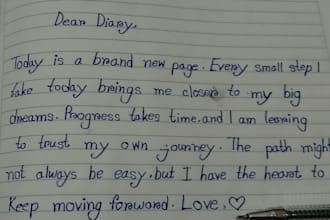 Dear Diary,
Today is a brand new page. Every small step I
take today brings me closer to my big
dreams. Progress takes time, and I am learing
to trust my own journey. The path might
not always be easy, but I have the heart to
Keep moving forward. Love, ♡